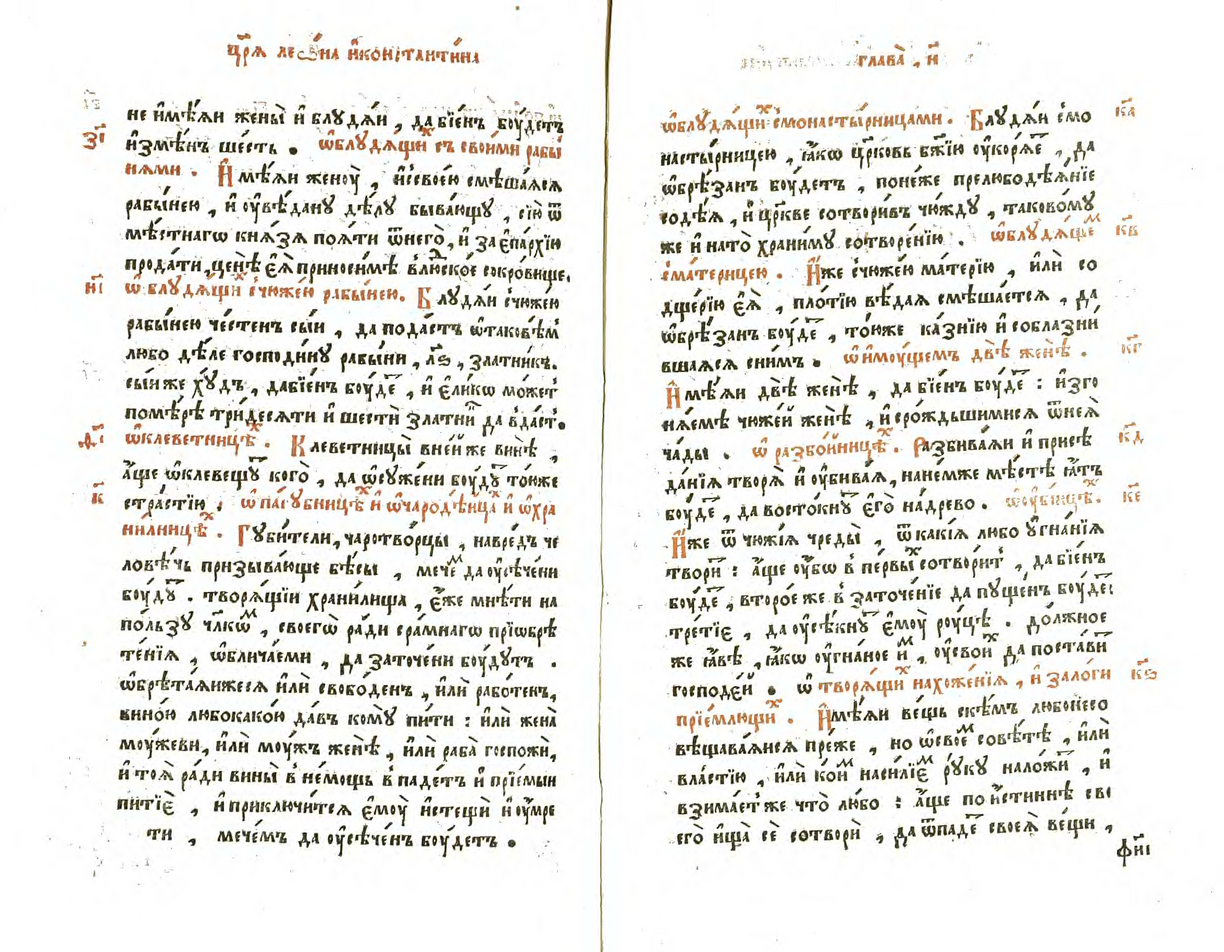 цр҃ѧ леѡ́на и҆константи́на
не и҆мѣ́ѧи жены̀ и҆ блудѧ́и , да бїе́нъ боу́детъ
з҃і
и҆змѣ́нъ ше́сть . ѡ҆блудѧ́щи х съ свои́ми рабы
нѧми . И҆мѣ́ѧи женоу̀ , и҆свое́ю смѣша́ѧсѧ
рабы́нею , и҆ оу҆вѣ́дану дѣ́лу быва́ющу , сїю̀ ѿ
мѣ́стнагѡ кнѧ́зѧ поѧ́ти ѿнегѡ̀, и҆ зає҆па́рхїю
прода́ти ,цѣнѣ̀ є҆ѧ̀ приноси́мѣ влюско́е сокро́вище.
и҃і
ѡ҆ блудѧ́щи х счюже́ю рабы́нею . Блудѧ́и счюже́ю
рабы́нею че́стенъ сы́и , да пода́стъ ѡ҆тако́вѣм
любо дѣ́ле господи́ну рабы́ни , л҃ѕ , златни́къ.
сы́иже ху́дъ , дабїе́нъ боу́де , и҆ є҆ли́кѡ мо́жет
помѣ́рѣ три́десѧти и҆ шестѝ златни да вда́ст.
ѳ҃і
ѡ҆клеветницѣ х . Клеветницы̀ вне́йже винѣ̀ ,
а҆́ще ѡ҆клеве́щу кого̀ , да ѡ҆су́жени боу́ду то́юже
к҃
стра́стїю . ѡ҆па́губницѣ х и҆ ѡ҆чародѣ́ица х и҆ ѡ҆хра
ни́лницѣ х . Губи́тели, чаротво́рцы , навре́дъ че
ловѣ́чь призыва́юще бѣ́сы , мече́ м да оу҆сѣ́чени
боу́ду . творѧ́щїи храни́лища , є҆́же мнѣ́ти на
по́льзу чл҃кѡ м , своегѡ̀ ра́ди сра́мнагѡ прїѡбрѣ
те́нїѧ , ѡ҆блича́еми , да заточе́ни боу́дутъ .
ѡ҆брѣта́ѧижесѧ и҆лѝ свобо́денъ , и҆лѝ рабо́тенъ,
вино́ю любокако́ю да́въ кому̀ пи́ти : и҆лѝ жена̀
моу́жеви, и҆лѝ моу́жъ женѣ̀ , и҆лѝ раба̀ госпожѝ,
и҆ тоѧ̀ ра́ди вины̀ в не́мощь в паде́тъ и҆ прїе́мыи
питїѐ , и҆приключи́тсѧ є҆моу̀ и҆стещѝ и҆ оу҆мре
ти , мече́мъ да оу҆сѣче́нъ боу́детъ .
глава̀ , и҃
к҃а
ѡ҆блудѧ́щи х смонасты́рницами . Блудѧ́и с҆мо
насты́рницею , ꙗ҆́кѡ цр҃ковь бж҃їю оу҆корѧ́е , да
ѡ҆брѣ́занъ боу́детъ , поне́же прелюбодѣѧ́нїе
содѣ́ѧ , и҆ цр҃кве сотвори́въ чю́жду , тако́вому
к҃в
же и҆ на то̀ храни́му сотворе́нїю . ѡ҆блудѧ́ще м
с ма́терицею . И҆́же счюже́ю ма́терїю , и҆лѝ со
дще́рїю є҆ѧ̀ , пло́тїю вѣ́даѧ смѣша́етсѧ , да
ѡ҆брѣ́занъ боу́де , то́юже ка́знїю и҆ соблазни́
к҃г
вшаѧсѧ сни́мъ . ѡ҆ и҆моу́щемъ двѣ̀ женѣ̀ .
И҆мѣ́ѧи двѣ̀ женѣ̀ , да бїе́нъ боу́де : и҆зго
нѧ́емѣ чюже́й женѣ̀ , и҆ сро́ждьшимисѧ ѿнеѧ̀
к҃д
ча́ды . ѡ҆ разбо́йницѣ х . Разбива́ѧи и҆ присѣ
да́нїѧ творѧ̀ и҆ оу҆бива́ѧ, нане́мже мѣ́стѣ ꙗ҆́тъ
к҃е
боу́де , да во́сткну є҆го̀ на́древо . ѡ҆оу҆бі́ицѣ х .
И҆́же ѿ чю́жїѧ чреды̀ , ѿ какі́ѧ любо у҆гна́нїѧ
твори : а҆́ще оу҆́бѡ в пе́рвы х сотвори́т , да бїе́нъ
боу́де , второ́е же в заточе́нїе да пу́щенъ боу́де:
тре́тїе , да оу҆сѣ́кну є҆моу̀ роу́цѣ . до́лжное
же ꙗ҆́вѣ , ꙗ҆́кѡ оу҆гна́ное и҆ м , оу҆свои х да поста́ви
к҃ѕ
господе́й . ѡ҆ творѧ́щи х нахоже́нїѧ , и҆ зало́ги
прїе́млющи х . И҆мѣ́ѧи ве́щь скѣ́мъ любонесо
вѣщава́ѧисѧ пре́же , но ѡ҆свое́ м совѣ́тѣ , и҆лѝ
вла́стїю , и҆лѝ ко́и м наси́лїе ру́ку наложи , и҆
взима́етже что̀ любо : а҆́ще по и҆́стиннѣ сво
его̀ и҆ща̀ сѐ сотворѝ , да ѿпаде своеѧ̀ ве́щи ,
фи҃і